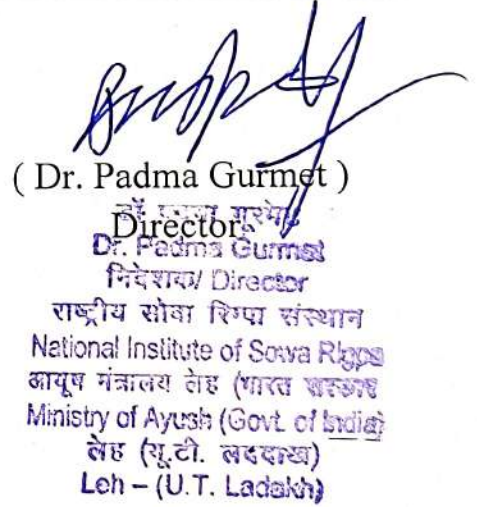 ( Dr. Padma Gurmet )
Director
डॉ. पदमा गुरमेत
Dr. Padma Gurmet
निदेशक/ Director
राष्ट्रीय सोवा रिग्पा संस्थान
National Institute of Sowa Rigpa
आयूष मंत्रालय लेह (भारत सरकार
Ministry of Ayush (Govt. of India)
लेह (यू.टी. लद्दाख)
Leh – (U.T. Ladakh)